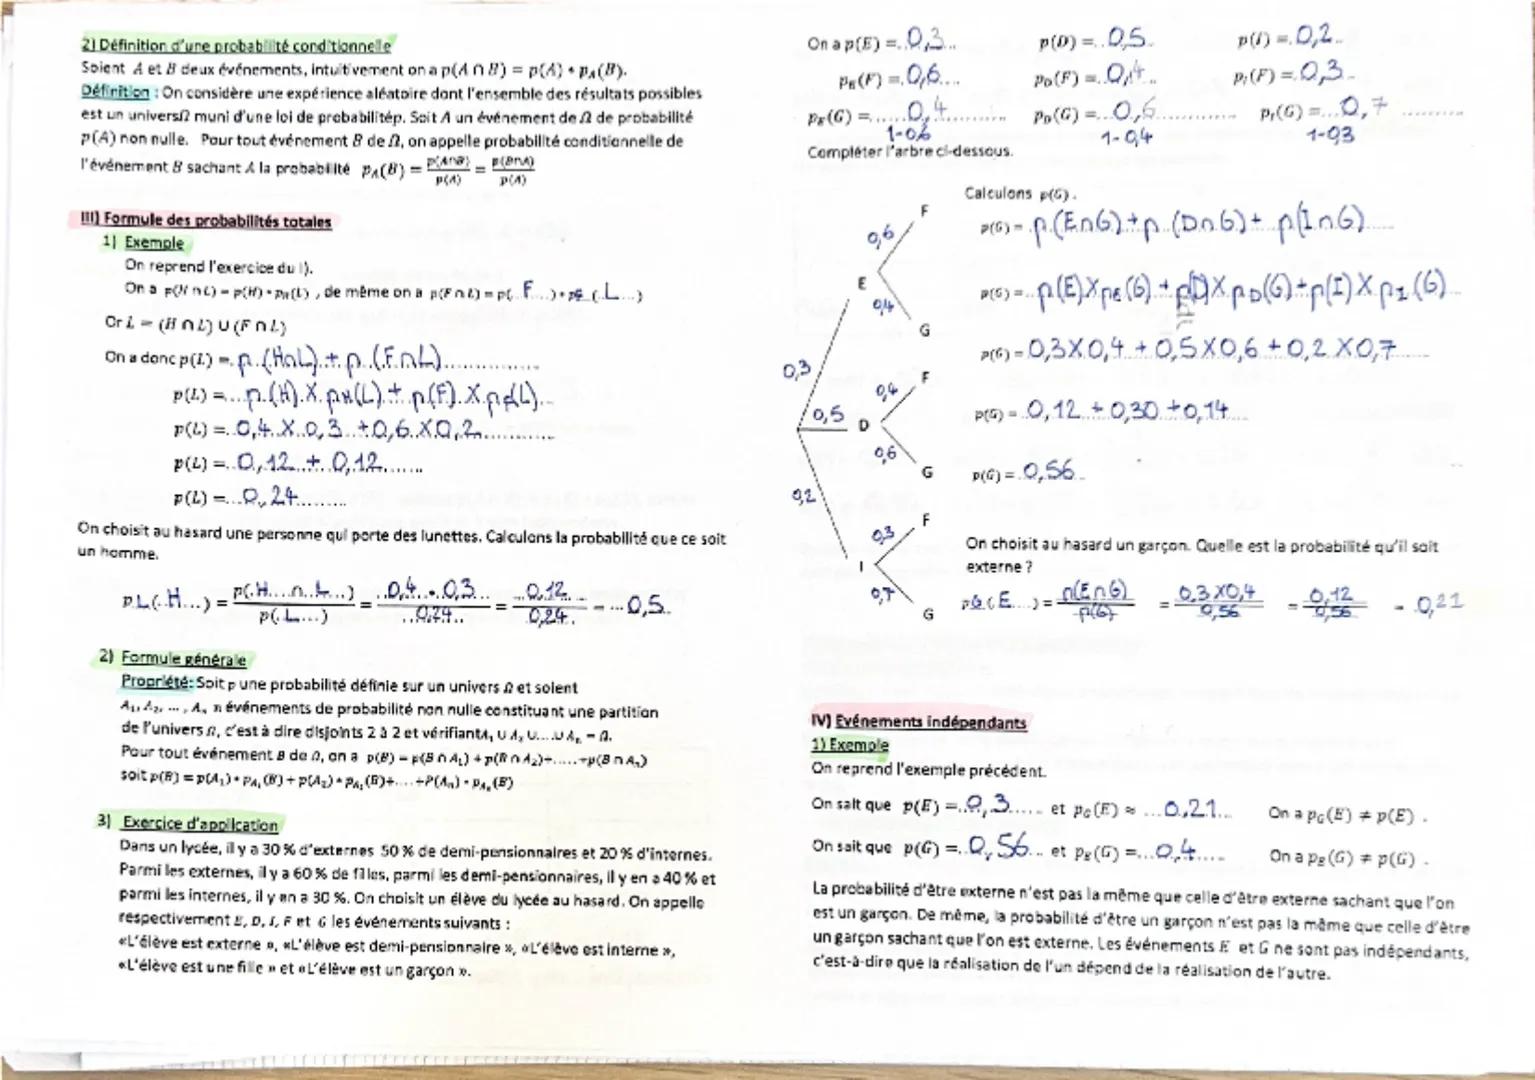 2) Définition d'une probabilité conditionnelle
Soient A et B deux événements, intuitivement on a p(A ∩ B) = p(A) × p_A(B).
Définition : On considère une expérience aléatoire dont l'ensemble des résultats possibles
est un univers Ω muni d'une loi de probabilité p. Soit A un événement de Ω de probabilité
p(A) non nulle. Pour tout événement B de Ω, on appelle probabilité conditionnelle de
l'événement B sachant A la probabilité p_A(B) = p(A∩B)/p(A) = p(B∩A)/p(A)
III) Formule des probabilités totales
1) Exemple
On reprend l'exercice du I).
On a p(H ∩ L) = p(H) × p_H(L), de même on a p(F ∩ L) = p(..F...) × p_F(..L...)
Or L = (H ∩ L) ∪ (F ∩ L)
On a donc p(L) = p.(H∩L).+.p.(F.∩L)...............
p(L) =...p.(H).X.p_H(L).+.p(F).X.p_F(L)...
p(L) =..0,4..X..0,3...+0,6..X0,2............
p(L) =..0,12..+..0,12.......
p(L) =...0,24.........
On choisit au hasard une personne qui porte des lunettes. Calculons la probabilité que ce soit
un homme.
p_L(..H...) = p(.H....∩..L...)/p(.L...) = ..0,4..×..0,3../..0,24.. = ...0,12.../0,24. = ...0,5.
2) Formule générale
Propriété: Soit p une probabilité définie sur un univers Ω et soient
A₁, A₂, ..., Aₙ n événements de probabilité non nulle constituant une partition
de l'univers Ω, c'est à dire disjoints 2 à 2 et vérifiant A₁ ∪ A₂ ∪....∪ Aₙ = Ω.
Pour tout événement B de Ω, on a p(B) = p(B ∩ A₁) + p(B ∩ A₂)+.....+p(B ∩ Aₙ)
soit p(B) = p(A₁) × p_A₁(B) + p(A₂) × p_A₂(B)+....+P(Aₙ) × p_Aₙ(B)
3) Exercice d'application
Dans un lycée, il y a 30 % d'externes 50 % de demi-pensionnaires et 20 % d'internes.
Parmi les externes, il y a 60 % de filles, parmi les demi-pensionnaires, il y en a 40 % et
parmi les internes, il y en a 30 %. On choisit un élève du lycée au hasard. On appelle
respectivement E, D, I, F et G les événements suivants :
«L'élève est externe », «L'élève est demi-pensionnaire », «L'élève est interne »,
«L'élève est une fille » et «L'élève est un garçon ».
On a p(E) =..0,3... p(D) =..0,5.. p(I) =.0,2..
p_E(F) =.0,6.... p_D(F) =..0,4... p_I(F) =.0,3..
p_E(G) =.....0,4............ p_D(G) =...0,6.............. p_I(G) =...0,7..........
1-0,6 1-0,4 1-0,3
Compléter l'arbre ci-dessous.
Calculons p(G).
p(G) = p.(E∩G)+p.(D∩G)+..p(I∩G).....
p(G) =..p(E)Xp_E(G)+p(D)Xp_D(G)+p(I)Xp_I(G)..
p(G) =.0,3X0,4..+0,5X0,6+0,2X0,7......
p(G) =.0,12..+0,30.+0,14....
p(G) =.0,56...
0,3
0,5
0,2
E
D
I
0,6
F
0,4
G
0,4
F
0,6
G
0,3
F
0,7
G
On choisit au hasard un garçon. Quelle est la probabilité qu'il soit
externe ?
p_G(E....) = p(E∩G)/p(G) = 0,3X0,4/0,56 = 0,12/0,56 = 0,21
IV) Evénements indépendants
1) Exemple
On reprend l'exemple précédent.
On sait que p(E) =..0,3...... et p_G(E) ≈ ...0,21... On a p_G(E) ≠ p(E) .
On sait que p(G) =..0,56... et p_E(G) =...0,4..... On a p_E(G) ≠ p(G) .
La probabilité d'être externe n'est pas la même que celle d'être externe sachant que l'on
est un garçon. De même, la probabilité d'être un garçon n'est pas la même que celle d'être
un garçon sachant que l'on est externe. Les événements E et G ne sont pas indépendants,
c'est-à-dire que la réalisation de l'un dépend de la réalisation de l'autre.